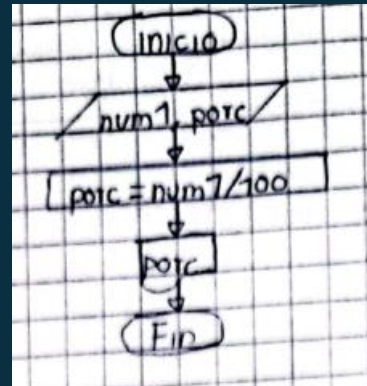 inicio
num1, porc
porc = num1/100
porc
Fin